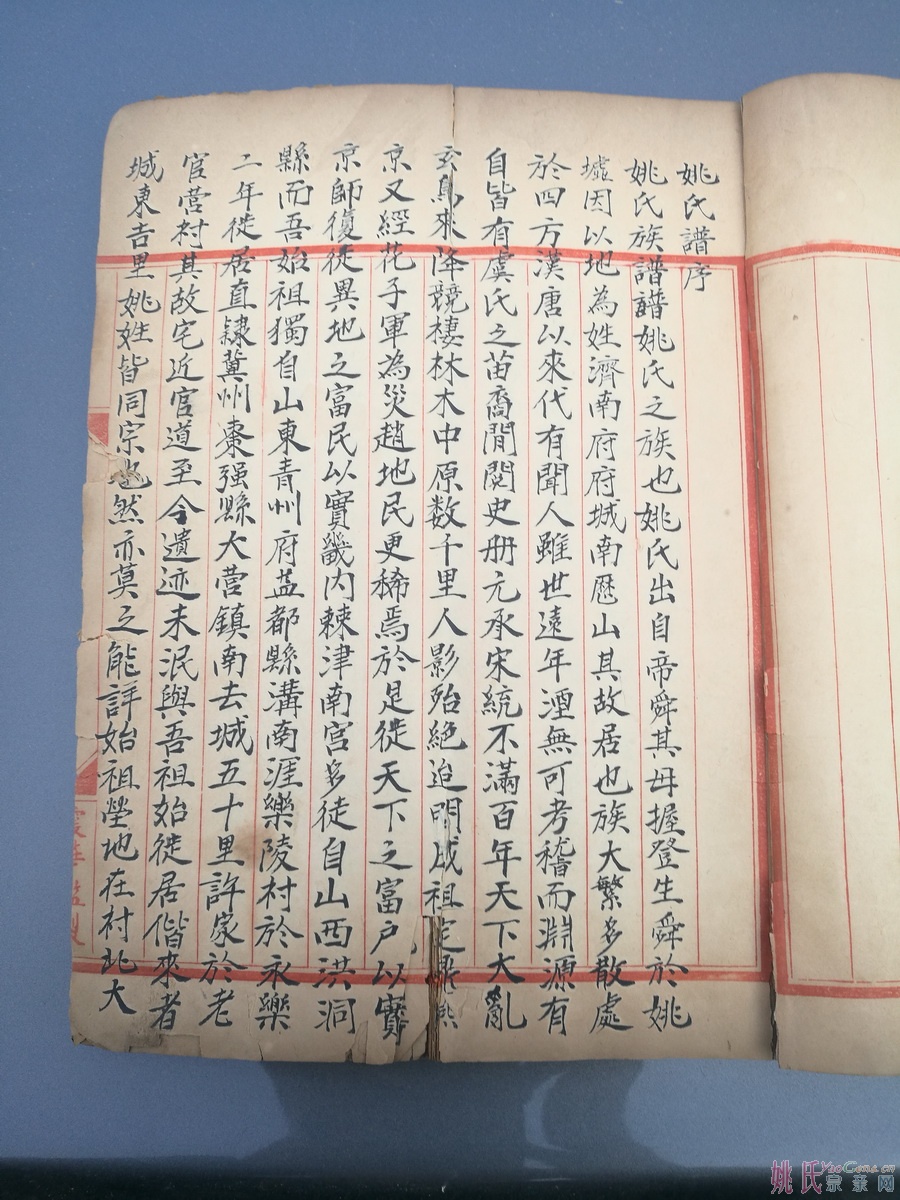 姚氏譜序
姚氏族譜譜姚氏之族也姚氏出自帝舜其母握登生舜於姚
墟因以地為姓濟南府府城南歷山其故居也族大繁多散處
於四方漢唐以來代有聞人雖世遠年湮無可考稽而淵源有
自皆有虞氏之苗裔閒閱史册元承宋統不滿百年天下大亂
玄鳥來降競棲林木中原数千里人影殆絕迨明成祖定鼎燕
京又經花子軍為災趙地民更稀焉於是徙天下之富戶以實
京師復徙異地之富民以實畿内棘津南宫多徒自山西洪洞
縣而吾始祖獨自山東青州府益都縣溝南涯樂陵村於永樂
二年徙居直隸冀州棗强縣大营鎮南去城五十里許家於老
官营村其故宅近官道至今遺迹未泯與吾祖始徙居偕來者
城東吉里姚姓皆同宗也然亦莫之能詳始祖塋地在村北大
製
姚氏宗亲网
YaoGens.cn